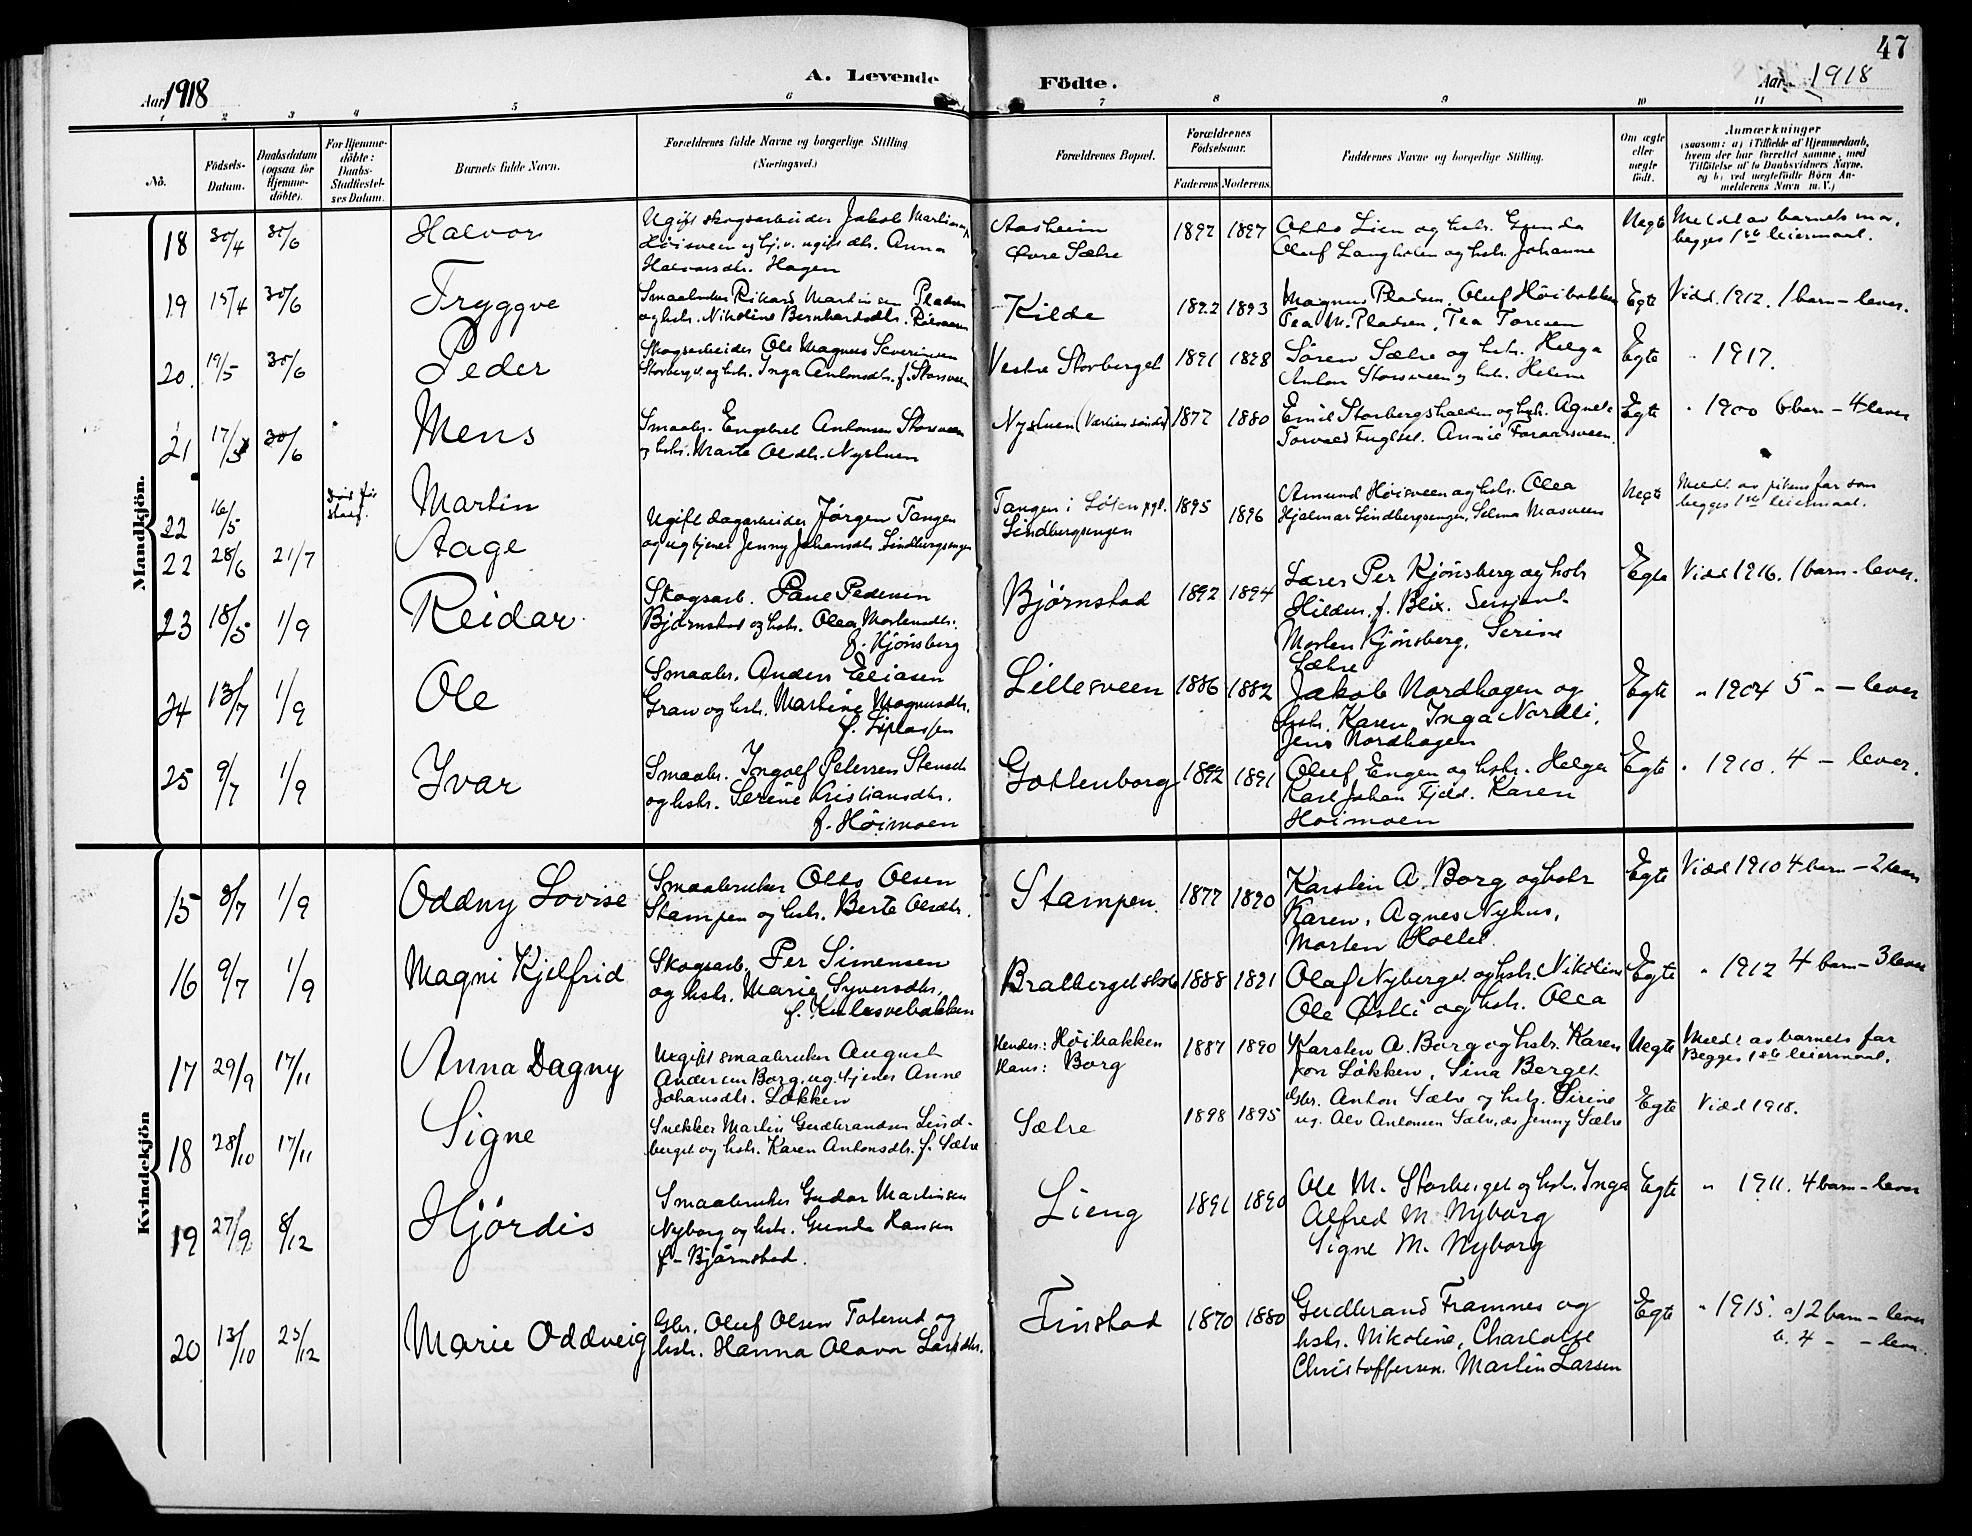 47
A. Levende Födte.
Aar 1918
Aar 1918
1 2 3 4 5 6 7 8 9 10 11
Nö.
Födsels-
Datum.
Daabsdatum
(ogsaa for
Hjemme-
döbte).
For Hjemme-
döbte:
Daabs-
Stadfæstel-
ses Datum.
Barnets fulde Navn.
Forældrenes fulde Navne og borgerlige Stilling
(Næringsvei.)
Forældrenes Bopæl.
Forældrenes
Födselsaar.
Faderens. Moderens.
Faddernes Navne og borgerlige Stilling.
Om ægte
eller
uægte
födt.
Anmærkninger
(saasom: a) i Tilfælde af Hjemmedaab,
hvem der har forrettet samme, med
Tilföielse af to Daabsvidners Navne,
og b) ved uegtefödte Börn An-
melderens Navn m. V.)
Mandkjön.
18 30/4 30/6 Halvor
Ugift skogsarbeider Jakob Martinsen
Høisveen og tj. v. ugift dtr. Anna
Halvorsdtr. Hagen
Aasheim
Øvre Sætre
1897 1897
Otto Lien og hstr. Gunda
Oluf Langholen og hstr. Johanne
Uegte
Meldt av barnets mor,
begges 1ste leiermaal.
19 15/4 30/6 Tryggve
Smaabruker Rikard Martinsen Pladsen
og hstr. Nikoline Bernhardsdtr.
Kilde
1892 1893
Magnus Pladsen, Oluf Høibakken
Tea M. Pladsen, Tea Toresen
Egte
Vidd. 1912. 1 barn - lever.
20. 19/5 30/6 Peder
Skogsarbeider Ole Magnus Severinsen
Storberget og hstr. Inga Antonsdtr. f. Storsveen
Vestre Storberget
1891 1898
Søren Sætre og hstr. Helga
Anton Storsveen og hstr. Helene
Egte
" 1917.
21 17/5 30/6 Mens
Smaabr. Engebret Antonsen Storsveen
og hstr. Marte Olsdtr. Nystuen
Nystuen
1877 1880
Emil Storbergshalden og hstr. Agnete
Torvald Fuglset. Annie Foraarsveen.
Egte
" 1900 6 barn - 4 lever
22 16/5 Martin
Ugift dagarbeider Jørgen Tangen
og ug. tjener Jenny Johansdtr. Lindbergsengen
Tangen i Løten pgl.
Lindbergsengen
1895 1896
Amund Høisveen og hstr. Olea
Hjalmar Lindbergsengen, Selma Masveen
Uegte
Meldt av pikens far som
begges 1ste leiermaal.
22 28/6 21/7 Aage
23 18/5 1/9 Reidar
Skogsarb. Paul Pedersen
Bjørnstad og hstr. Olea Mortensdtr.
f. Kjønsberg
Bjørnstad
1892 1894
Lærer Per Kjönsberg og hstr
Hildur f. Blix. Sersjant
Morten Kjönsberg, Serine
Sætre
Egte
Vidd 1916. 1 barn - lever.
24 13/7 1/9 Ole
Smaabr. Anders Eliasen
Graw og hstr. Martine Magnusdtr.
Lillesveen
1886 1882
Jakob Nordhagen og
hstr. Karen, Inga Nordli,
Jens Nordhagen
Egte
" 1904 5 " - lever
25 9/7 1/9 Ivar
Smaabr. Ingolf Petersen
og hstr. Serine Kristiansdtr.
f. Høimoen
Gottenborg
1892 1891
Oluf Engen og hstr. Helga
Karl Johan Fjeld. Karen
Høimoen
Egte
" 1910. 4 - lever.
Kvindekjön
15 8/7 1/9 Oddny Lovise
Smaabruker Otto Olsen
Stampen og hstr. Berte Olsdtr.
Stampen.
1877 1890
Karsten A. Borg og hstr
Karen, Agnes Nyhus,
Morten Holtet.
Egte
Vidd 1910 4 barn - 2 lever
16 9/7 1/9 Magni Kjelfrid
Skogsarb. Per Simensen
og hstr. Marie Syversdtr.
f. Kulusvebakken
Bratberget skole
1888 1891
Olaf Nyberget og hstr. Nikoline
Ole Østli og hstr. Olea
Egte
" 1912 4 barn - 3 lever
17 29/9 17/11 Anna Dagny
Ugift smaabruker August
Andersen Borg. ug. tjener Anne
Johansdtr. Løkken
Hendes: Høibakken
Hans: Borg
1887 1890
Karsten A. Borg og hstr. Karen
Jon Løkken, Sina Berget
Uegte
Meldt av barnets far
Begges 1ste leiermaal.
18 28/10 17/11 Signe
Snekker Martin Gudbrandsen Lind-
berget og hstr. Karen Antonsdtr. f. Sætre
Sætre
1898 1895
Gbr. Anton Sætre og hstr. Sirine
ug. Alv Antonsen Sætre, do Jenny Sætre
Egte
Vidd 1918.
19 27/9 8/12 Hjördis
Smaabruker Gudar Martinsen
Nyborg og hstr. Gunda Hansen
f. Bjørnstad.
Lieng
1891 1890
Ole M. Storberget og hstr. Inga
Alfred M. Nyborg
Signe M. Nyborg
Egte
" 1911. 4 barn - lever
20 13/10 25/12 Marie Oddveig
Gbr. Oluf Olsen Taterud og
hstr. Hanna Olava Larsdtr.
Finstad
1870 1880
Gudbrand Framnes og
hstr. Nikoline, Charlotte
Christoffersen. Martin Larsen
Egte
" 1915. a) 2 barn - lever
b. 4 - - lever.